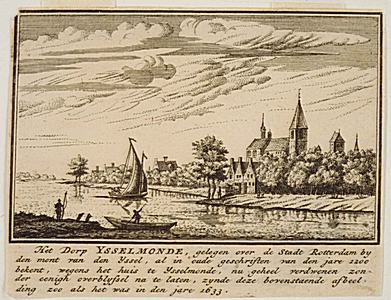 Het Dorp YSSELMONDE, gelegen over de Stadt Rotterdam by
den mont van den Yssel, al in oude geschriften van den jare 1200
bekent, wegens het huis te Ysselmonde, nu geheel verdwenen zon-
der eenigh overblyfsel na te laten, zynde deze bovenstaende afbeel-
ding zoo als het was in den jare 1633.